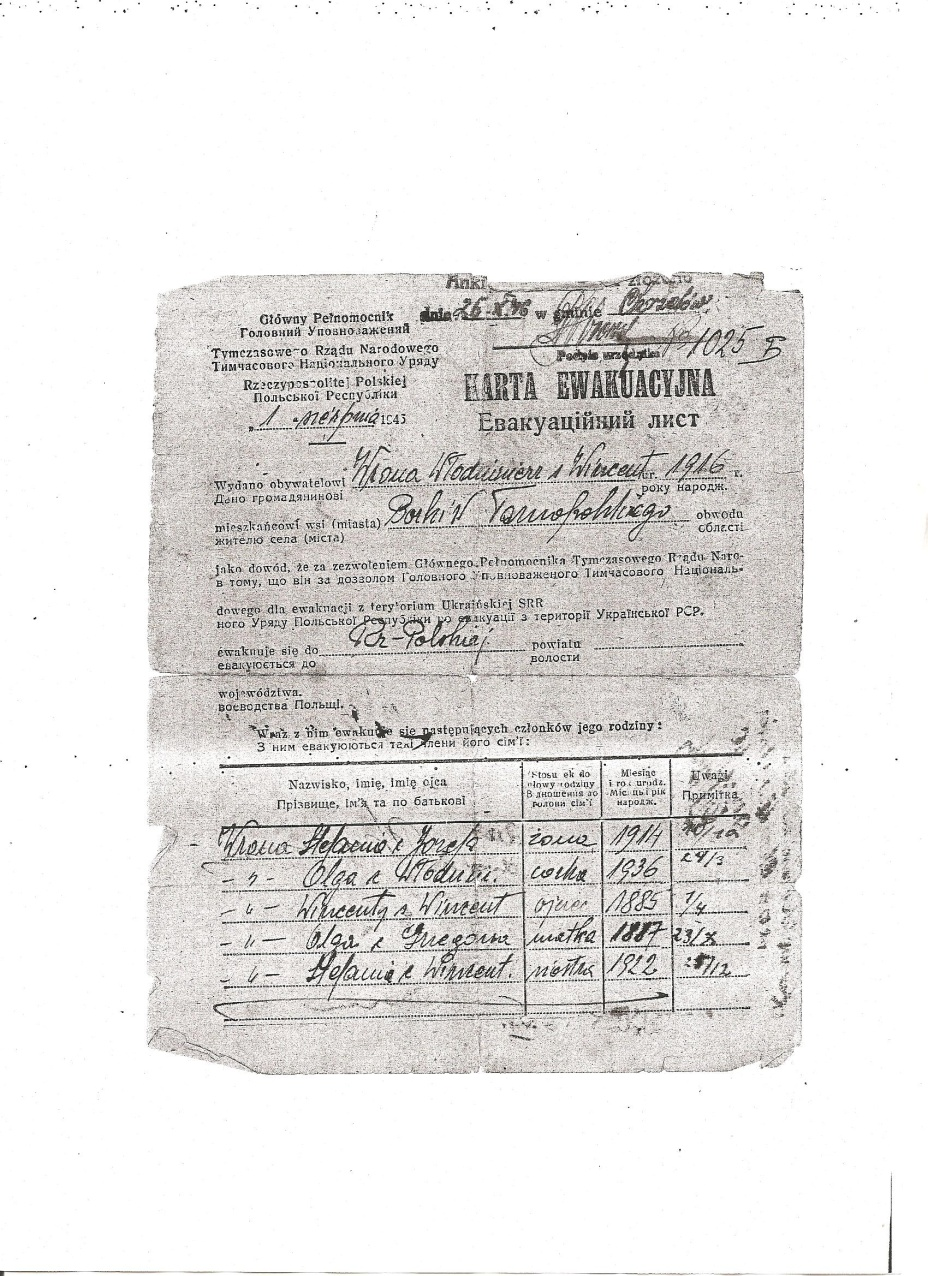 dnia 26-X 46 w gminie
Podpis urzędnika
1025
Główny Pełnomocnik
Головний Уповноважений
Tymczasowego Rządu Narodowego
Тимчасового Національного Уряду
Rzeczypospolitej Polskiej
Польської Республіки
„1 sierpnia 1945
KARTA EWAKUACYJNA
Евакуаційний лист
Wydano obywatelowi Wrona Włodzimierz s Wincent ur. 1916 r.
Дано громадянинові року народж.
mieszkańcowi wsi (miasta) Borki W Tarnopolskiego obwodu
жителю села (міста) області
jako dowód, że za zezwoleniem Głównego Pełnomocnika Tymczasowego Rządu Naro-
в тому, що він за дозволом Головного Уповноваженого Тимчасового Національ-
dowego dla ewakuacji z terytorium Ukraińskiej SRR
ного Уряду Польської Республіки по евакуації з території Української РСР.
ewakuuje się do powiatu
евакуюється до волости
województwa.
воєводства Польщі.
Wraz z nim ewakuuje się następujących członków jego rodziny:
З ним евакуюються такі члени його сім'ї:
Nazwisko, imię, imię ojca
Прізвище, ім'я та по батькові
Stosunek do głowy rodziny
Відношення до голови сім'ї
Miesiąc i rok urodz.
Місяць і рік народж.
Uwagi
Примітка
Wrona Stefania c Józefa żona 1914
- „ - Olga c Włodzim. córka 1936 24/3
- „ - Wincenty s Wincent ojciec 1885 7/4
- „ - Olga c Grzegorza matka 1887 23/X
- „ - Stefania c Wincent. siostra 1922